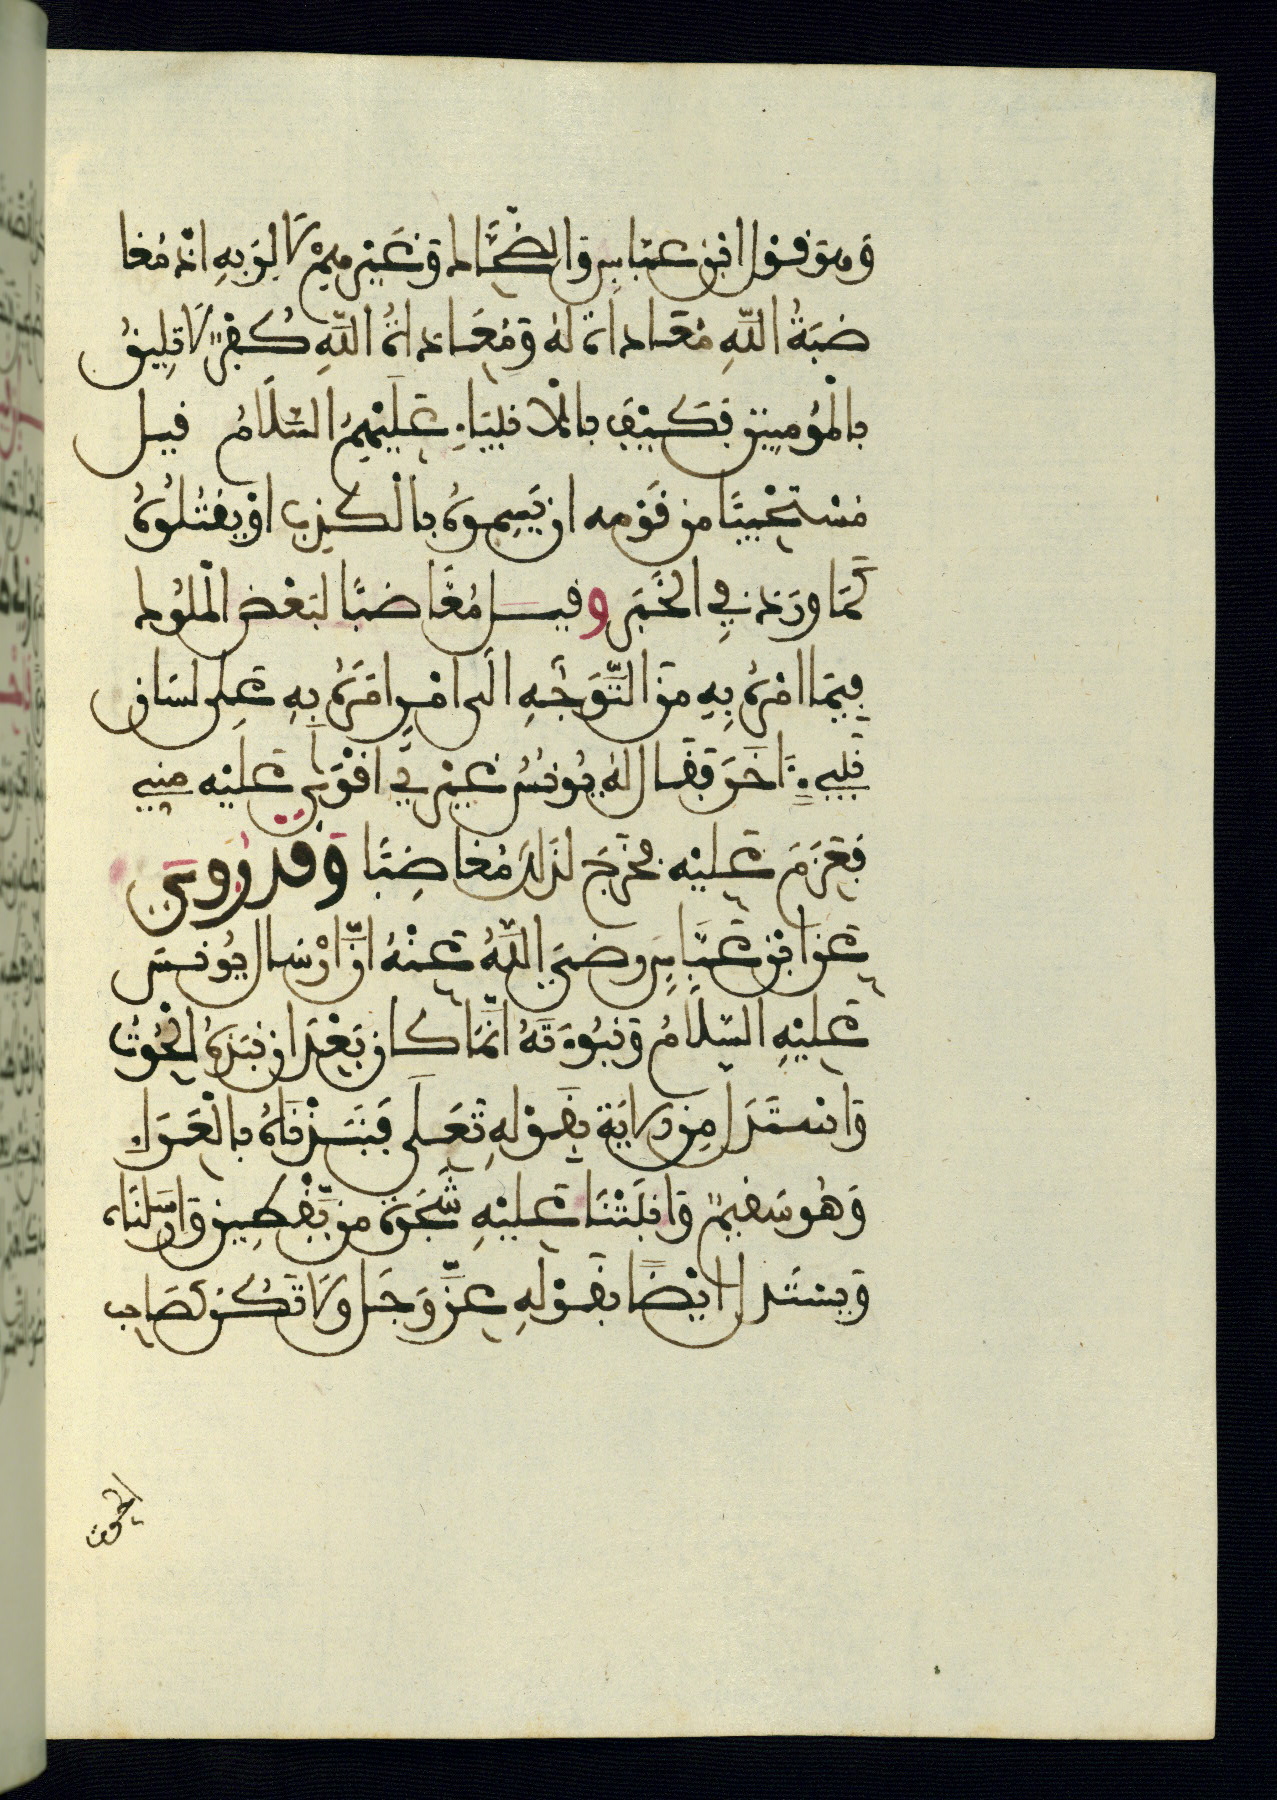 وَهُوَ قَوْلُ ابْنِ عَبَّاسٍ وَالضَّحَّاكِ وَغَيْرِهِمْ لَا لِرَبِّهِ اذْ مُغَا
ضَبَةُ اللَّهِ مُعَادَاةٌ لَهُ وَمُعَادَاةُ اللَّهِ كُفْرٌ لَا يَلِيقُ
بِالْمُومِنِينَ فَكَيْفَ بِالْانبِيَاءِ عَلَيْهِمُ السَّلَامُ قيل
مُسْتَحْيِيًا مِن قَوْمِه ان يَسِمُوهُ بِالْكَذِبِ اوْ يَقْتُلُوهُ
كَمَا وَرَدَ فِي الْخَبَرِ وقيل مُغَاضِبًا لِبَعْضِ الْمُلُوكِ
فِيمَا امَرَهُ بِهِ مِنَ التَّوَجُّهِ الَى امْرٍ امَرَهُ بِهِ عَلى لِسَانِ
نَبِيءٍ اخَرَ فَقَال لَهُ يُونُسُ غَيْرِي اقْوَى عَلَيْه مِنِّي
فَعَزَمَ عَلَيْه فَخَرَجَ لِذَلِكَ مُغَاضِبًا وَقد رُوِيَ
عَنِ ابْنِ عَبَّاسٍ رَضِيَ اللَّهُ عَنْهُ انَّ ارْسَال يُونُسَ
عَلَيْهِ السَّلَامُ وَنُبُوءَتَهُ انَّمَا كَان بَعْدَ ان نَبَذَهُ الْحُوتُ
وَاسْتَدَل مِن وَلايَة بِقَوْلِهِ تَعَلَى فَنَبَذْنَاهُ بِالْعَرَاءِ
وَهُوَ سَقِيمٌ وَانبَتْنَا عَلَيْهِ شَجَرَةً مِن يَّقْطِينٍ وَارْسَلْنَاهُ
وَيُسْتَدل ايْضًا بِقَوْلِهِ عَزَّ وَجَل وَلَا تَكُن كَصَاحِبِ
الحوت